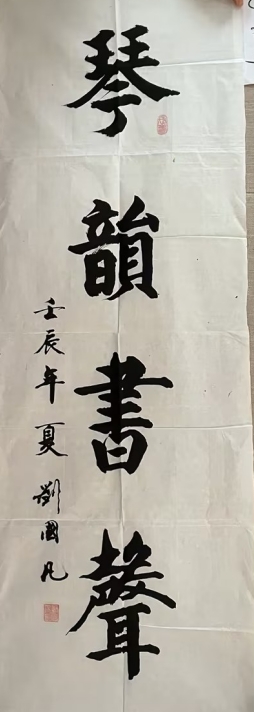 琴韻書聲
壬辰年夏 劉國凡